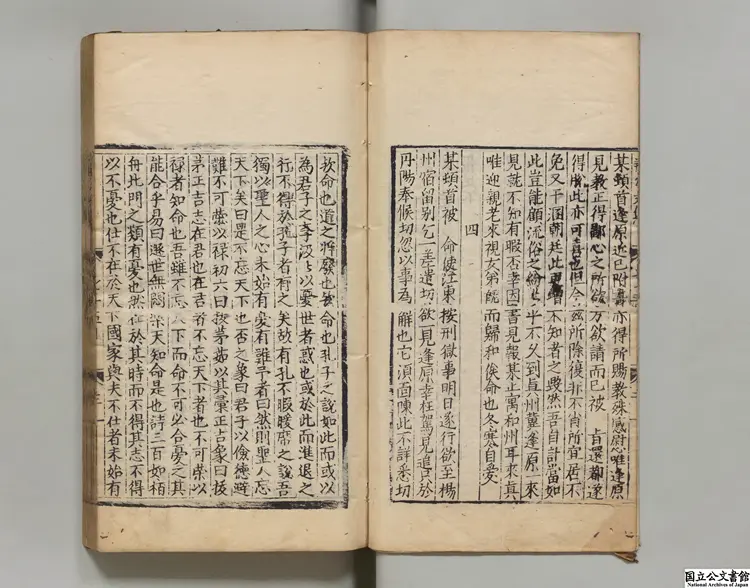 某頓首逢原近已附書亦得所賜教殊感慰唯逢原
見教正得鄙心之所欲方欲請而已被 旨還都遂
得脫此亦可喜也但今茲所除復非不肖所宜居不
免又干溷朝廷此更增不知者之毀然吾自計當如
此豈能顧流俗之紛紛乎不久到真州冀逢原一來
見就不知有暇否幸因書見報某止寓和州耳來真
唯迎親老來視女弟既而歸和俟命也冬寒自愛
四
某頓首被 命使江東按刑獄事明日遂行欲至楊
州宿留別乞一差遣切欲一見逢原幸枉駕見追只於
丹陽奉候切忽以事為 解也它須面陳此不詳悉切
歟命也道之將廢也歟命也孔子之說如此而或以
為君子之學汲汲以憂世者惑也或於此而進退之
行不得於孔子者有之矣故有孔不暇暖席之說吾
獨以聖人之心未始有憂有難予者曰然則聖人忘
天下矣曰是不忘天下也否之象曰君子以儉德避
難不可榮以祿初六曰拔茅茹以其彙正吉象曰拔
茅正吉志在君也在君者不忘天下者也不可榮以
祿者知命也吾雖不忘天下而命不可必合憂之其
能合乎易曰遯世無悶樂天知命是也詩三百如栢
舟北門之類有憂也然仕於其時而不得其志不得
以不憂也仕不在於天下國家與夫不仕者未始有
国立公文書館
National Archives of Japan